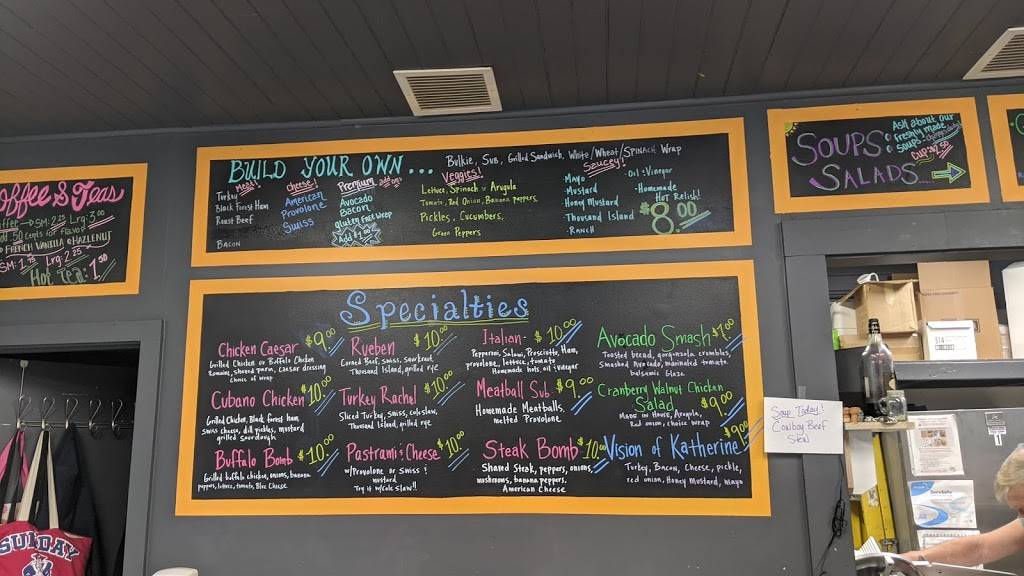 offee & Teas
SM: 2.25 Lrg: 3.00
Add 50 cents for flavor!
FRENCH VANILLA HAZLENUT
SM: 1. Lrg: 2.25
Hot Tea: 1.50
BUILD YOUR OWN...
Bulkie, Sub, Grilled Sandwich, White/Wheat/Spinach Wrap
Meat!
Turkey
Black Forest Ham
Roast Beef
Bacon
Cheese!
American
Provolone
Swiss
Premium add ons
Avocado
Bacon
gluten free wrap
Add 1.00
Veggies!
Lettuce, Spinach or Arugula
Tomato, Red Onion, Banana peppers,
Pickles, Cucumbers,
Green Peppers
Saucey!
-Mayo
-Mustard
Honey Mustard
Thousand Island
-RANCH
-Oil & Vinegar
-Homemade
Hot Relish!
$8.00
SOUPS &
SALADS...
Ask about our
freshly made
soups
Cup
Specialties
Chicken Caesar $9.00
Grilled Chicken or Buffalo Chicken
Romaine, shaved parm, Caesar dressing
Choice of wrap
Cubano Chicken $10.00
Grilled Chicken, Black forest ham
Swiss cheese, dill pickles, mustard
grilled sourdough
Buffalo Bomb $10.00
Grilled buffalo chicken, onions, banana
peppers, lettuce, tomato, Blue Cheese
Rueben $10.00
Corned Beef, Swiss, Sauerkraut,
Thousand Island, grilled rye
Turkey Rachel $10.00
Sliced Turkey, Swiss, coleslaw,
Thousand Island, grilled rye
Pastrami & Cheese $10.00
w/Provolone or Swiss &
mustard
Try it w/Cole Slaw!!
Italian- $10.00
Pepperoni, Salami, Prosciutto, Ham,
provolone, lettuce, tomato
Homemade hots, oil & vinegar
Meatball Sub $9.00
Homemade Meatballs,
melted Provolone
Steak Bomb $10.00
Shaved Steak, peppers, onions,
mushrooms, banana peppers,
American Cheese
Avocado Smash $9.00
Toasted bread, gorgonzola crumbles,
Smashed Avocado, marinated tomato,
balsamic glaze
Cranberry Walnut Chicken
Salad $9.00
Made in House, Arugula,
Red onion, choice wrap
Vision of Katherine $9.00
Turkey, Bacon, Cheese, pickle,
red onion, Honey Mustard, mayo
Soup Today!
Cowboy Beef
Stew
SUNDAY